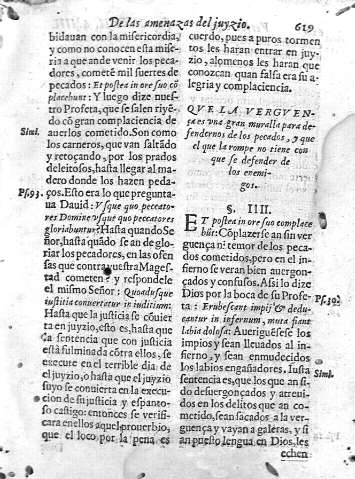 De las amenazas del juyzio. 619
bidauan con la misericordia,
y como no conocen esta mise
ria a que ande venir los peca
dores, cometē mil suertes de
pecados: Et postea in ore suo cō
placebunt: Y luego dize nues
tro Profeta, que se salen riyē-
do cō gran complaciencia de
auerlos cometido. Son como
los carneros, que van saltādo
y retoçando, por los prados
deleitosos, hasta llegar al ma
dero donde los hazen peda-
ços. Esto era lo que pregunta-
ua Dauid: Vsque quo peccato
res Domine vsque quo peccatores
gloriabuntur? Hasta quando Se
ñor, hasta quādo se an de glo-
riar los pecadores, en las ofen
sas que contra vuestra Mages-
tad cometen? y respondele
el mismo Señor: Quoadusque
iustitia conuertatur in iuditium:
Hasta que la justicia se cōuier
ta en juyzio, esto es, hasta que
la sentencia que con justicia
està fulminada cōtra ellos, se
execute en el terrible dia de
el juyzio, o hasta que el juyzio
suyo se conuierta en la execu-
cion de su justicia y espanto-
so castigo: entonces se verifi-
cara en ellos aquel prouerbio,
que el loco por la pena es
Simil.
Ps. 93.
cuerdo, pues a puros tormen
tos les haran entrar en juy-
zio, alomenos les haran que
conozcan quan falsa era su a-
legria y complaciencia.
QVE LA VERGVEN-
ça es vna gran muralla para de-
fendernos de los pecados, y que
el que la rompe no tiene con
que se defender de
los enemi-
gos.
§. IIII.
ET postea in ore suo complace
būt: Cōplazerse an sin ver-
guença ni temor de los peca-
dos cometidos, pero en el in-
fierno se veran bien auergon-
çados y confusos. Assi lo dize
Dios por la boca de su Profe-
ta: Erubescant impij & dedu-
cantur in infernum, muta fiant
labia dolosa: Auerguēsese los
impios y sean lleuados al in-
fierno, y sean enmudecidos
los labios engañadores. Iusta
sentencia es, que los que an si-
do desuergonçados y atreui-
dos en los delitos que an co-
metido, sean sacados a la ver-
guença y vayan a galeras, y si
an puesto lengua en Dios, les
echen
Ps. 30.
Simil.